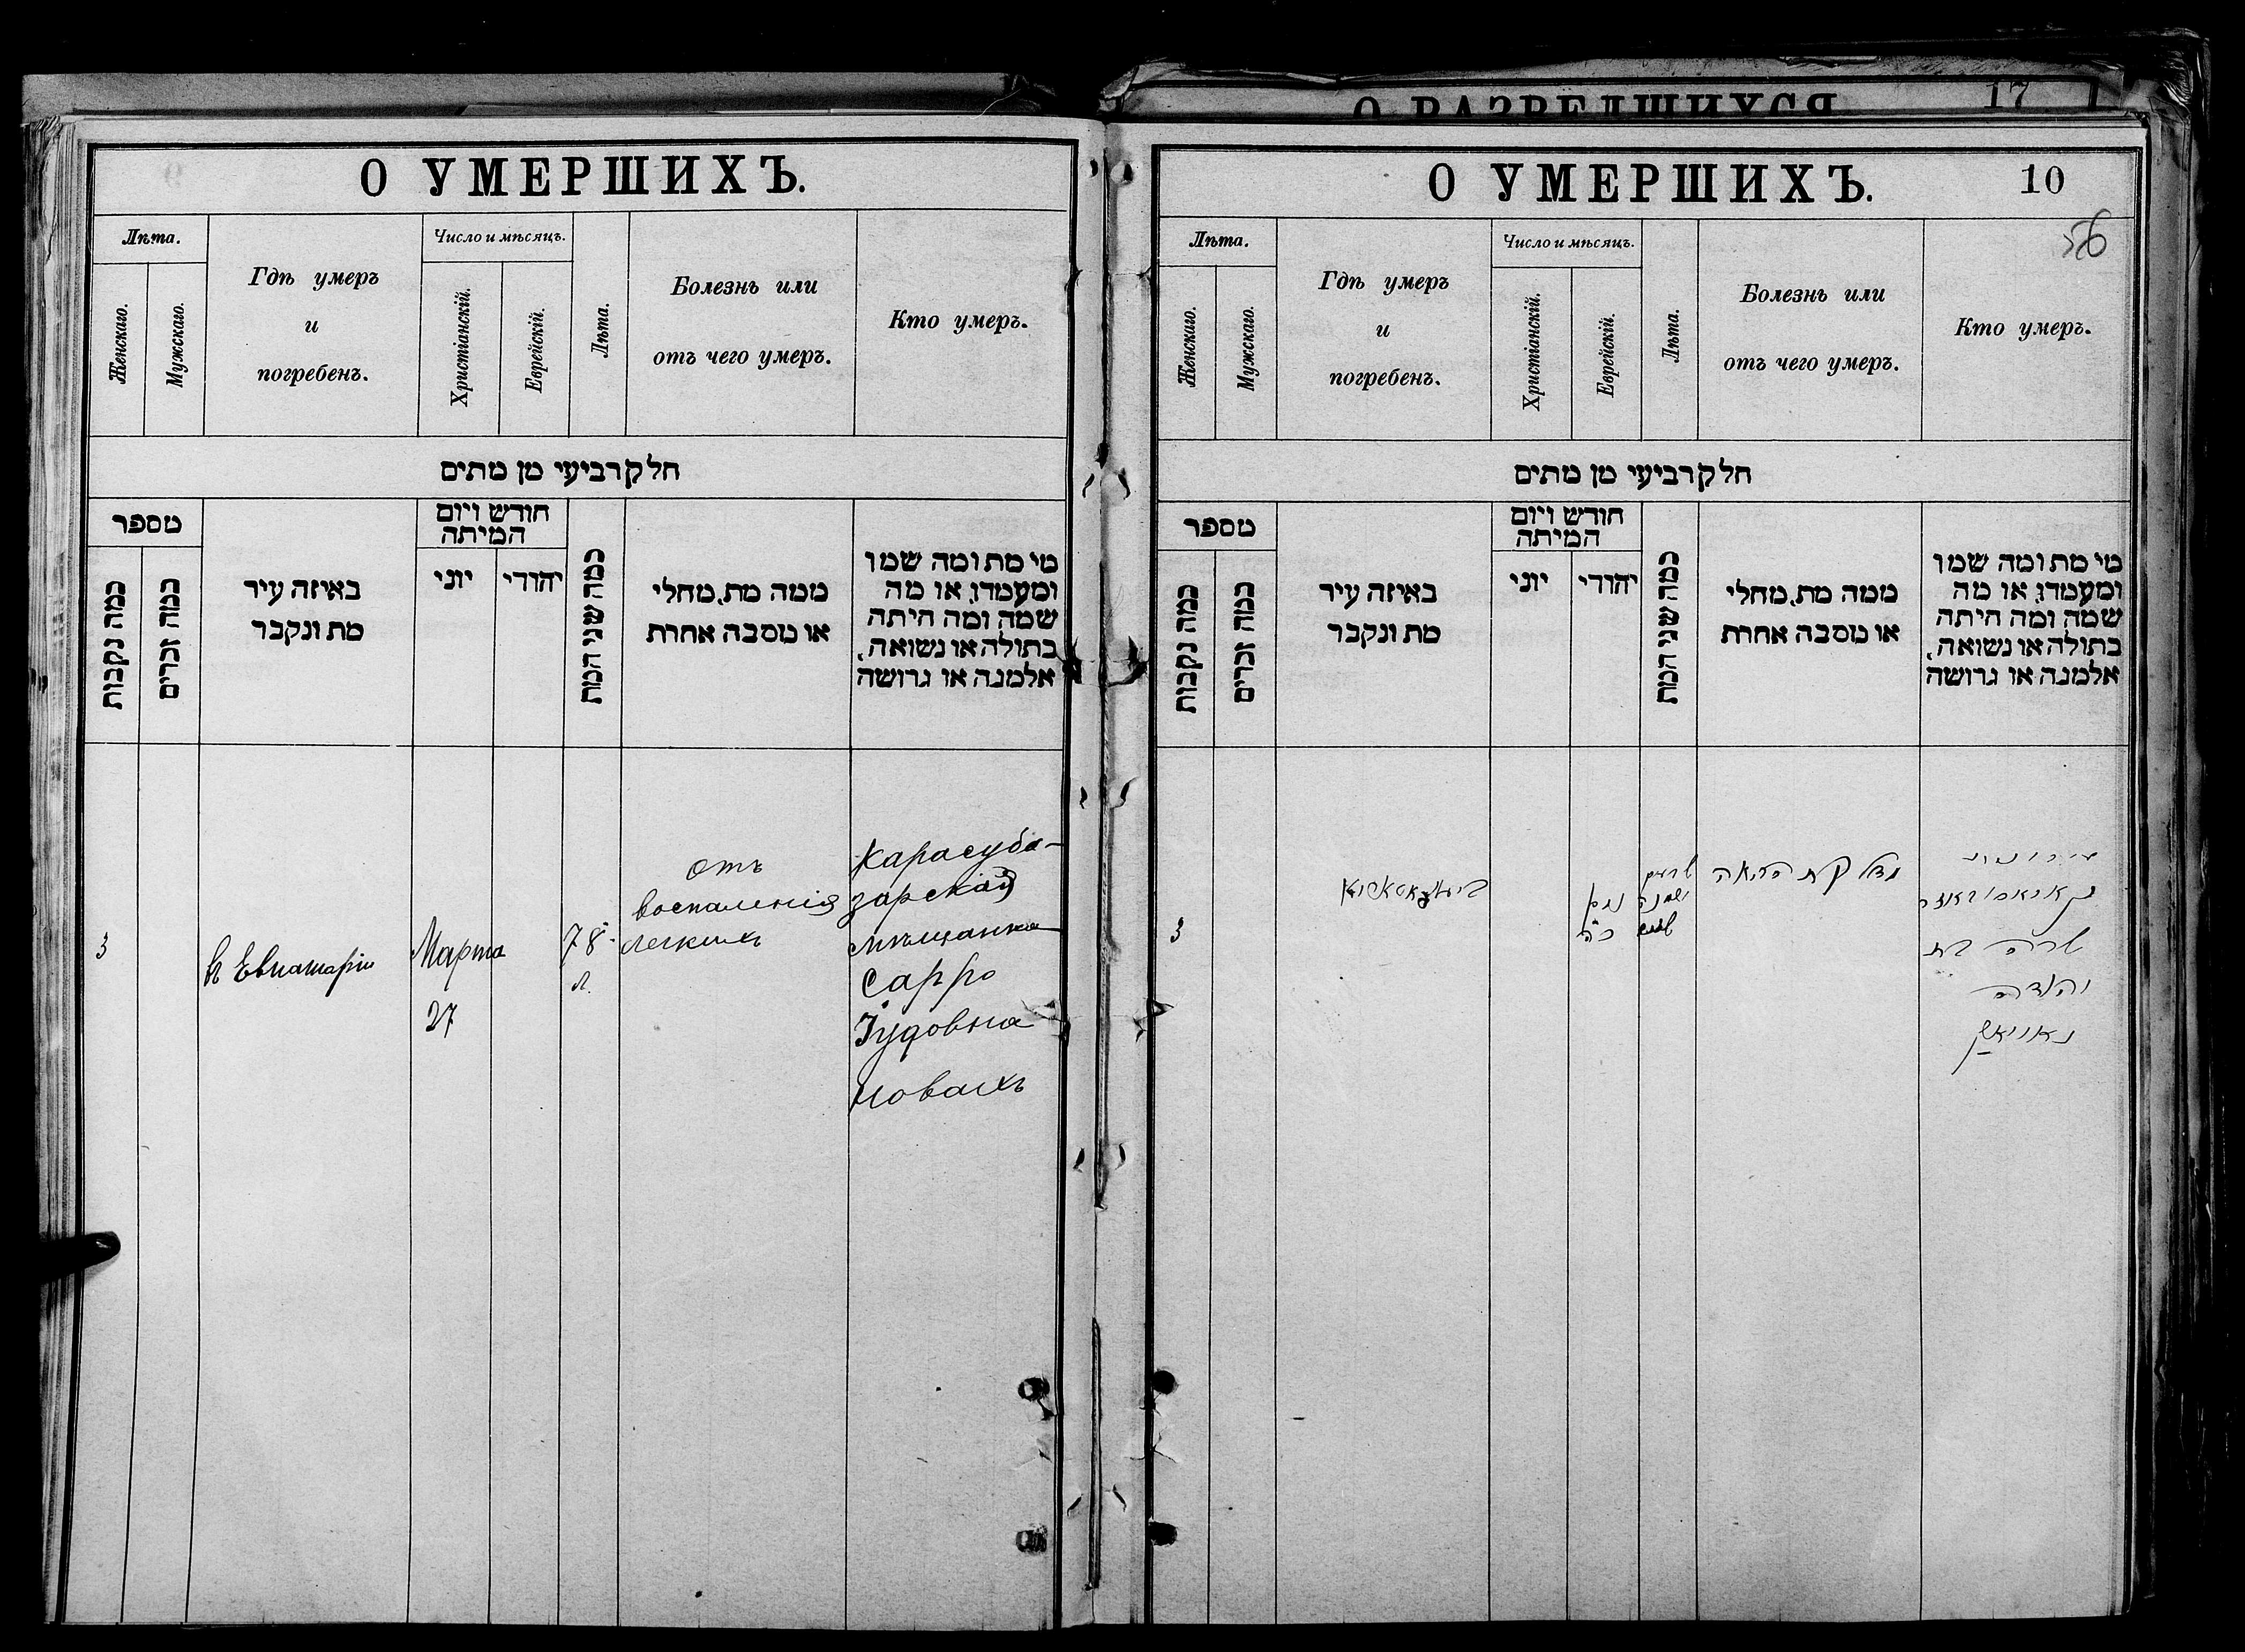 О РАЗВЕДШИХСЯ
17
О УМЕРШИХЪ.
Лѣта.
Женскаго.
Мужскаго.
Гдѣ умеръ
и
погребенъ.
Число и мѣсяцъ.
Христіанскій.
Еврейскій.
Лѣта.
Болезнь или
отъ чего умеръ.
Кто умеръ.
חלק רביעי מן מתים
מספר
כמה נקבות
כמה זכרים
באיזה עיר
מת ונקבר
חודש ויום
המיתה
יוני
יהודי
כמה שני המת
ממה מת, מחלי
או מסבה אחרת
מי מת ומה שמו
ומעמדו, או מה
שמה ומה היתה
בתולה או נשואה,
אלמנה או גרושה
3
в Евпаторіи
Марта
27
78
л.
отъ
воспаленія
легкихъ
Карасуба-
зарская
мѣщанка
Сарра
Іудовна
Новахъ
О УМЕРШИХЪ.
10
56
Лѣта.
Женскаго.
Мужскаго.
Гдѣ умеръ
и
погребенъ.
Число и мѣсяцъ.
Христіанскій.
Еврейскій.
Лѣта.
Болезнь или
отъ чего умеръ.
Кто умеръ.
חלק רביעי מן מתים
מספר
כמה נקבות
כמה זכרים
באיזה עיר
מת ונקבר
חודש ויום
המיתה
יוני
יהודי
כמה שני המת
ממה מת, מחלי
או מסבה אחרת
מי מת ומה שמו
ומעמדו, או מה
שמה ומה היתה
בתולה או נשואה,
אלמנה או גרושה
3
ניסן
כ"ה
שבעים
ושמנה
שנים
מדלקת הריאה
שרה בת
יהודה